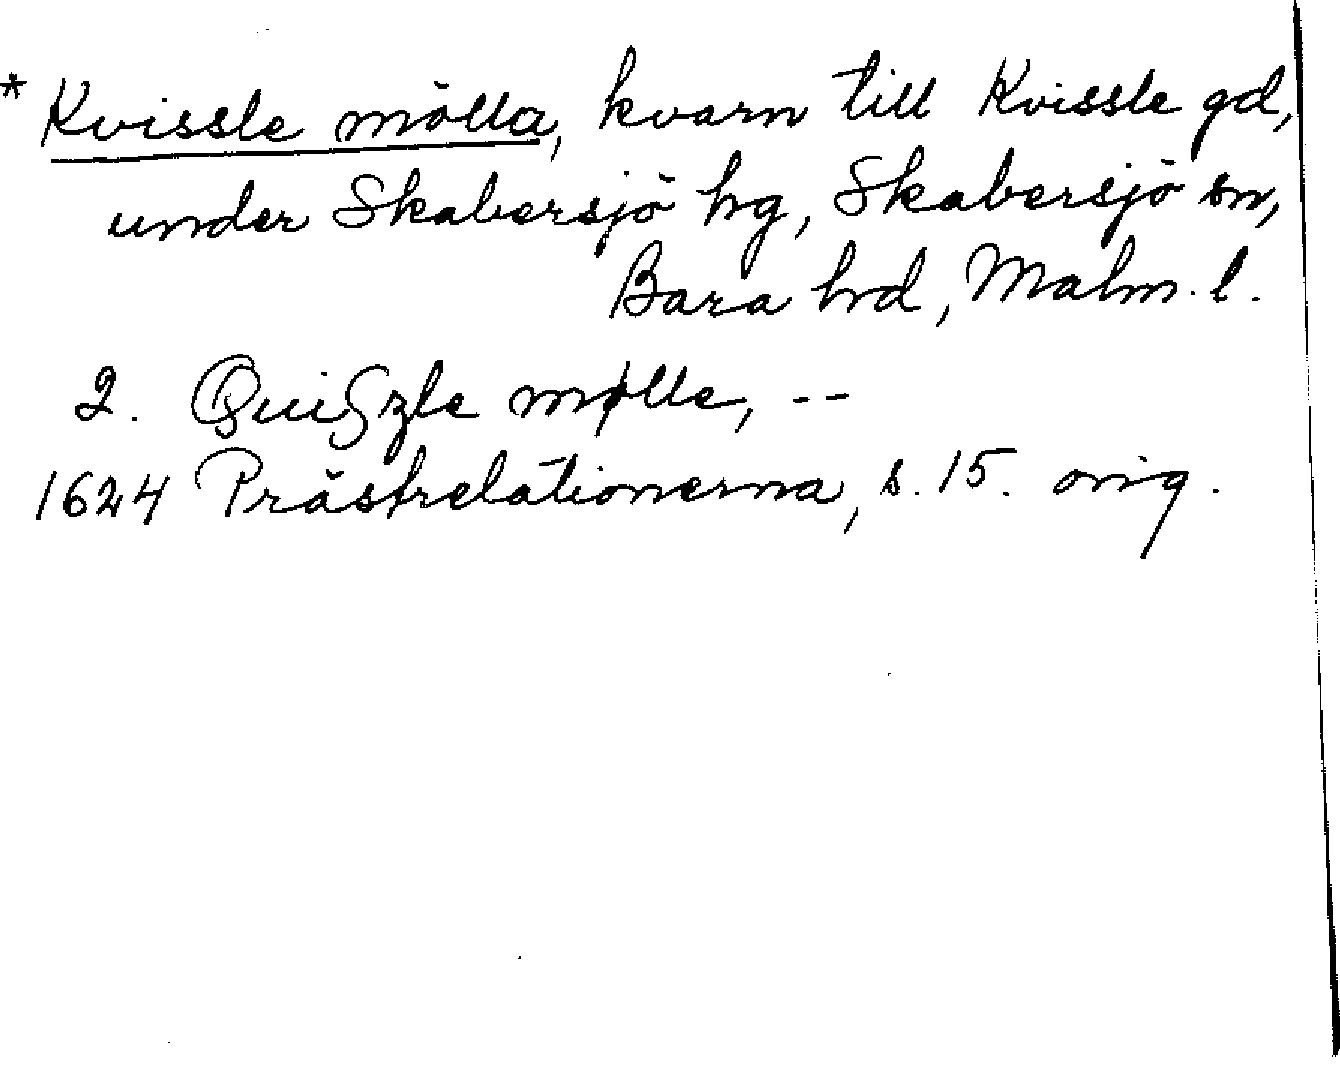 * Kvissle mölla, kvarn till Kvissle gd,
under Skabersjö hg, Skabersjö sn,
Bara hrd, Malm. l.
2. Quiszle mølle, --
1624 Prästrelationerna, s. 15. orig.